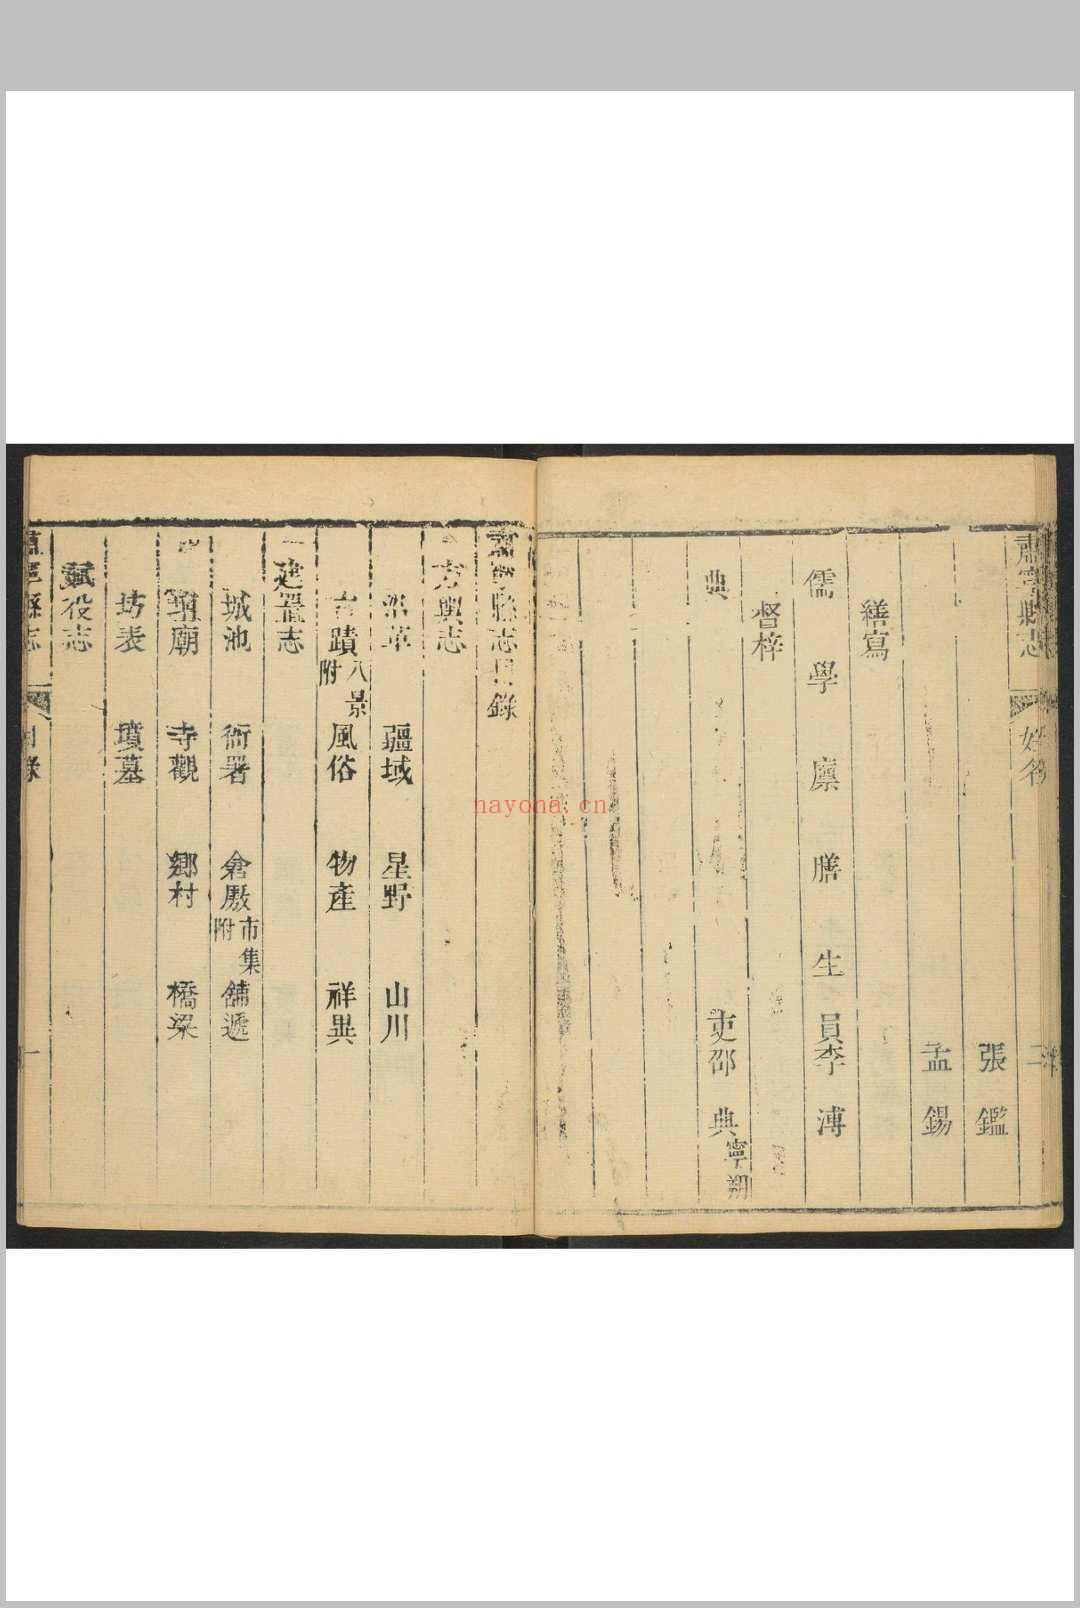 肅寧縣志
姓名
二
張鑑
孟錫
繕寫
儒學廩膳生員李溥
督梓
典
吏邵典寧朔
肅寧縣志目錄
方輿志
沿革 疆域 星野 山川
古蹟八景附 風俗 物產 祥異
一建置志
城池 衙署 倉厫市集附 舖遞
壇廟 寺觀 鄉村 橋梁
坊表 墳墓
賦役志
肅寧縣志
目錄
一
nayona.cn